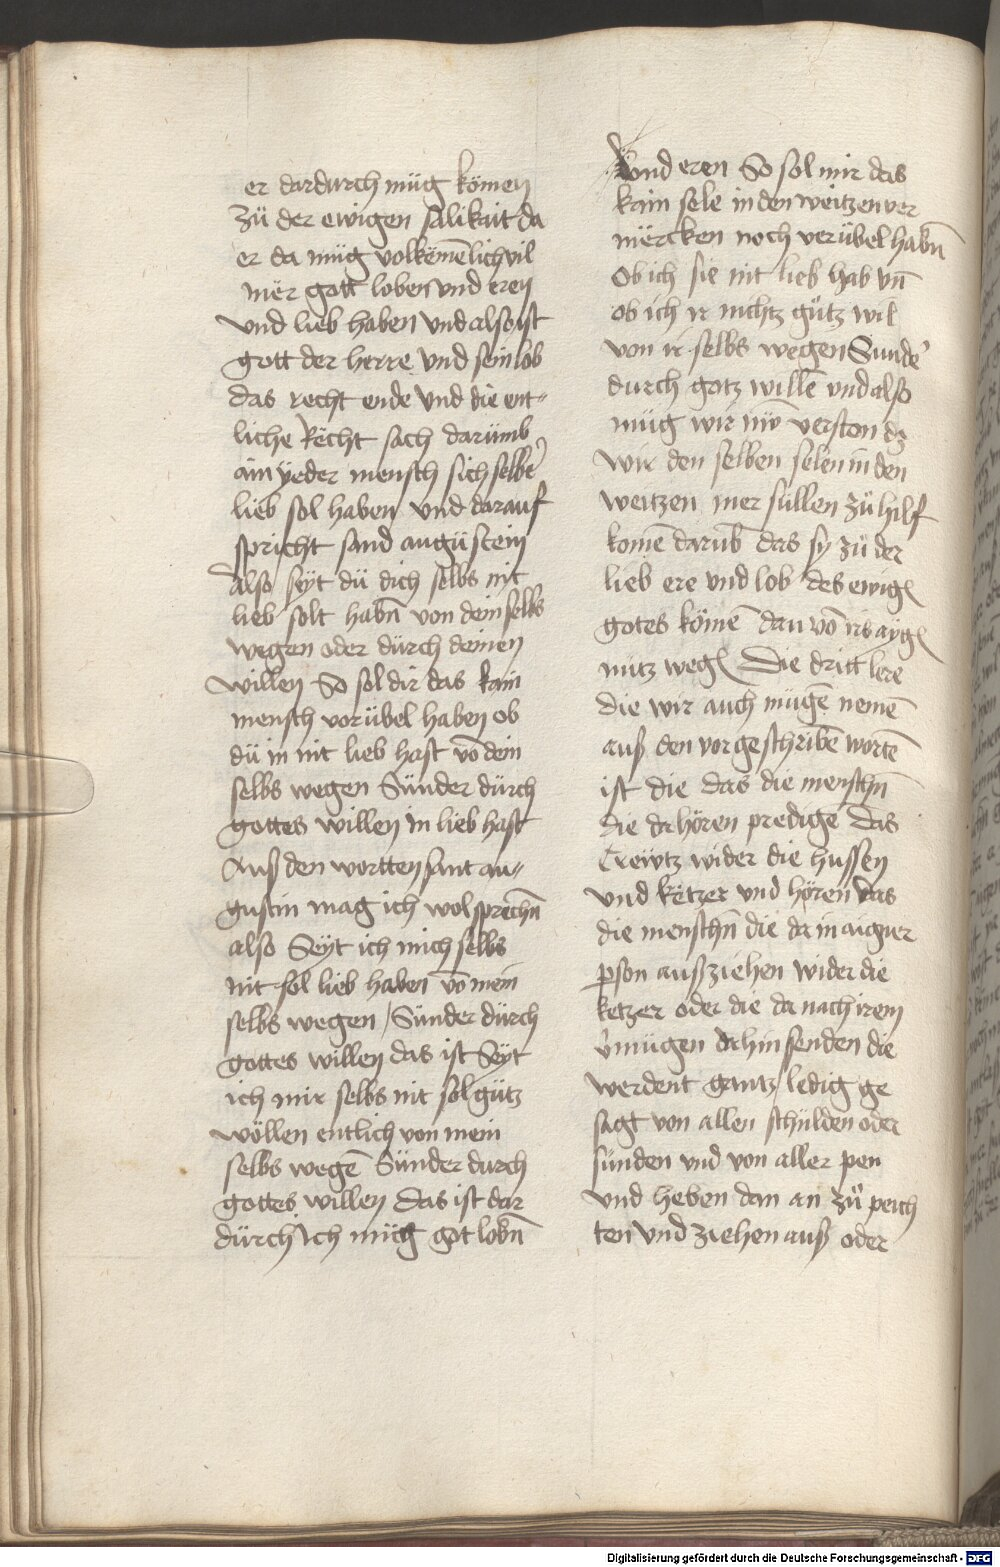 er dardurch müg kömen
zü der ewigen salikait da
er da müg volkëmēlich vil
mër gott loben vnd eren
vnd lieb haben vnd also ist
gott der herre vnd sein lob
das recht ende vnd die ent-
liche Recht sach darümb
ain ÿeder mensch sich selber
lieb sol haben vnd darauf
spricht sand augüstein
also seÿt dü dich selbs nit
lieb solt habn̄ von dein selbs
wegen oder dürch deinen
willen So sol dir das kain
mensch vorübel haben ob
dü in nit lieb hast vō dein
selbs wegen Sünder dürch
gottes willen in lieb hast
Auß den wortten sant au-
gustin mag ich wol sprechn̄
also Seÿt ich mich selbs
nit sol lieb haben vō mein
selbs wegen / Sünder dürch
gottes willen das ist Seÿt
ich mir selbs nit sol gütz
wöllen entlich von mein
selbs wegē Sünder durch
gottes willen das ist dar
dürch ich müg got lobn̄
vnd eren So sol mir das
kain sele in den weitzen ver
mërcken noch verübel habn̄
Ob ich sie nit lieb hab vn̄
ob ich ir nichtz gütz wil
von ir selbs wegen Sunder
durch gotz willē vnd also
müg wir nw̄ verston dz
wir den selben selen in den
weitzen mer süllen zü hilf
komē darub̄ das sy zü der
lieb ere vnd lob des ewigē
gotes kömē dan vō irs aygē
nütz wegē Die dritt lere
die wir auch mügē nemē
auß den vorgeschribē wortē
ist die das die menschn̄
die da hören predigē das
Crewtz wider die hussen
vnd ketzer vnd hören das
die menschn̄ die da in aigner
p̱son auß ziehen wider die
ketzer oder die da nach irem
v̓mügen dahin senden die
werdent gantz ledig ge
sagt von allen schülden oder
sünden vnd von aller pen
vnd heben dan an zü peich
ten vnd ziehen auß oder
Digitalisierung gefördert durch die Deutsche Forschungsgemeinschaft - DFG